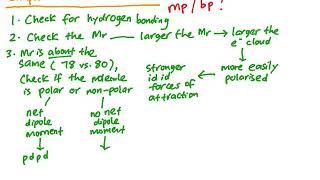 mp/bp?
1. Check for hydrogen bonding
2. Check the Mr → larger the Mr → larger the
e⁻ cloud
3. Mr is about the
same (78 vs. 80),
Check if the molecule
is polar or non-polar
more easily
polarised
Stronger
id id
forces of
attraction
net
dipole
moment
no net
dipole
moment
pdpd